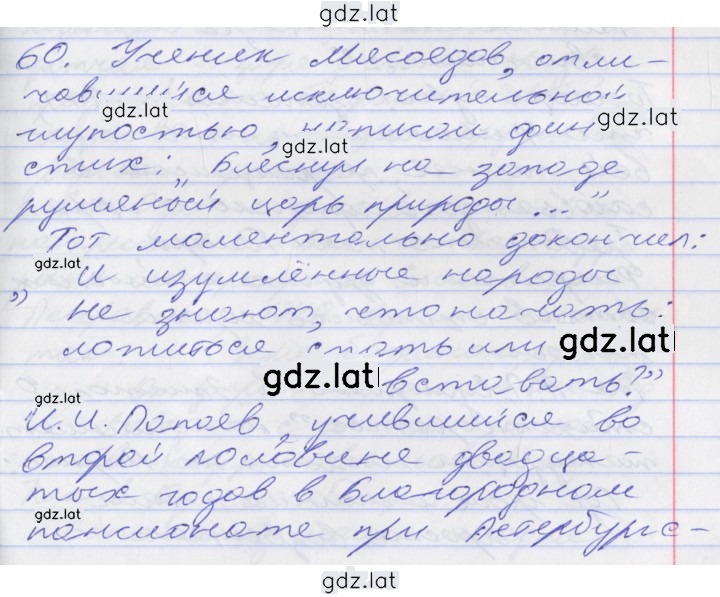 gdz.lat
60. Ученик Мясоедов, отли-
чавшийся исключительной
gdz.lat
gdz.lat
глупостью, написал один
gdz.lat
стих: „Блеснул на западе
румяный царь природы..."
Тот моментально докончил:
gdz.lat
И изумлённые народы
„ не знают, что начать:
ложиться спать или
gdz.lat
gdz.lat
вставать?"
И.И. Панаев, учившийся во
второй половине двадца-
тых годов в Благородном
gdz.lat
пансионате при Петербургс-
gdz.lat